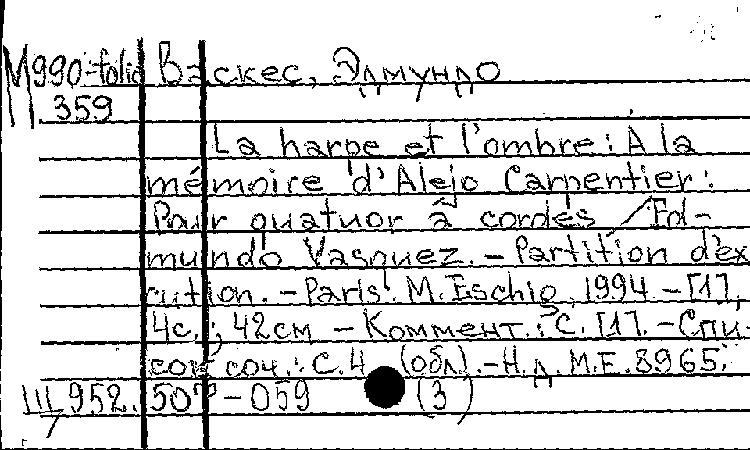 М990-folio Васкес, Эдмундо
359
La harpe et l'ombre : A la
mémoire d'Alejo Carpentier :
Pour quatuor à cordes / Ed-
mundo Vasquez. - Partition d'ex
cution. - Paris : M. Eschig, 1994 - [1],
4с. ; 42см - Коммент.: С. [1]. - Спи-
сок соч.: С. 4 (обл). - Н.д. M.E. 8965.
952. 50 - 059 (3)